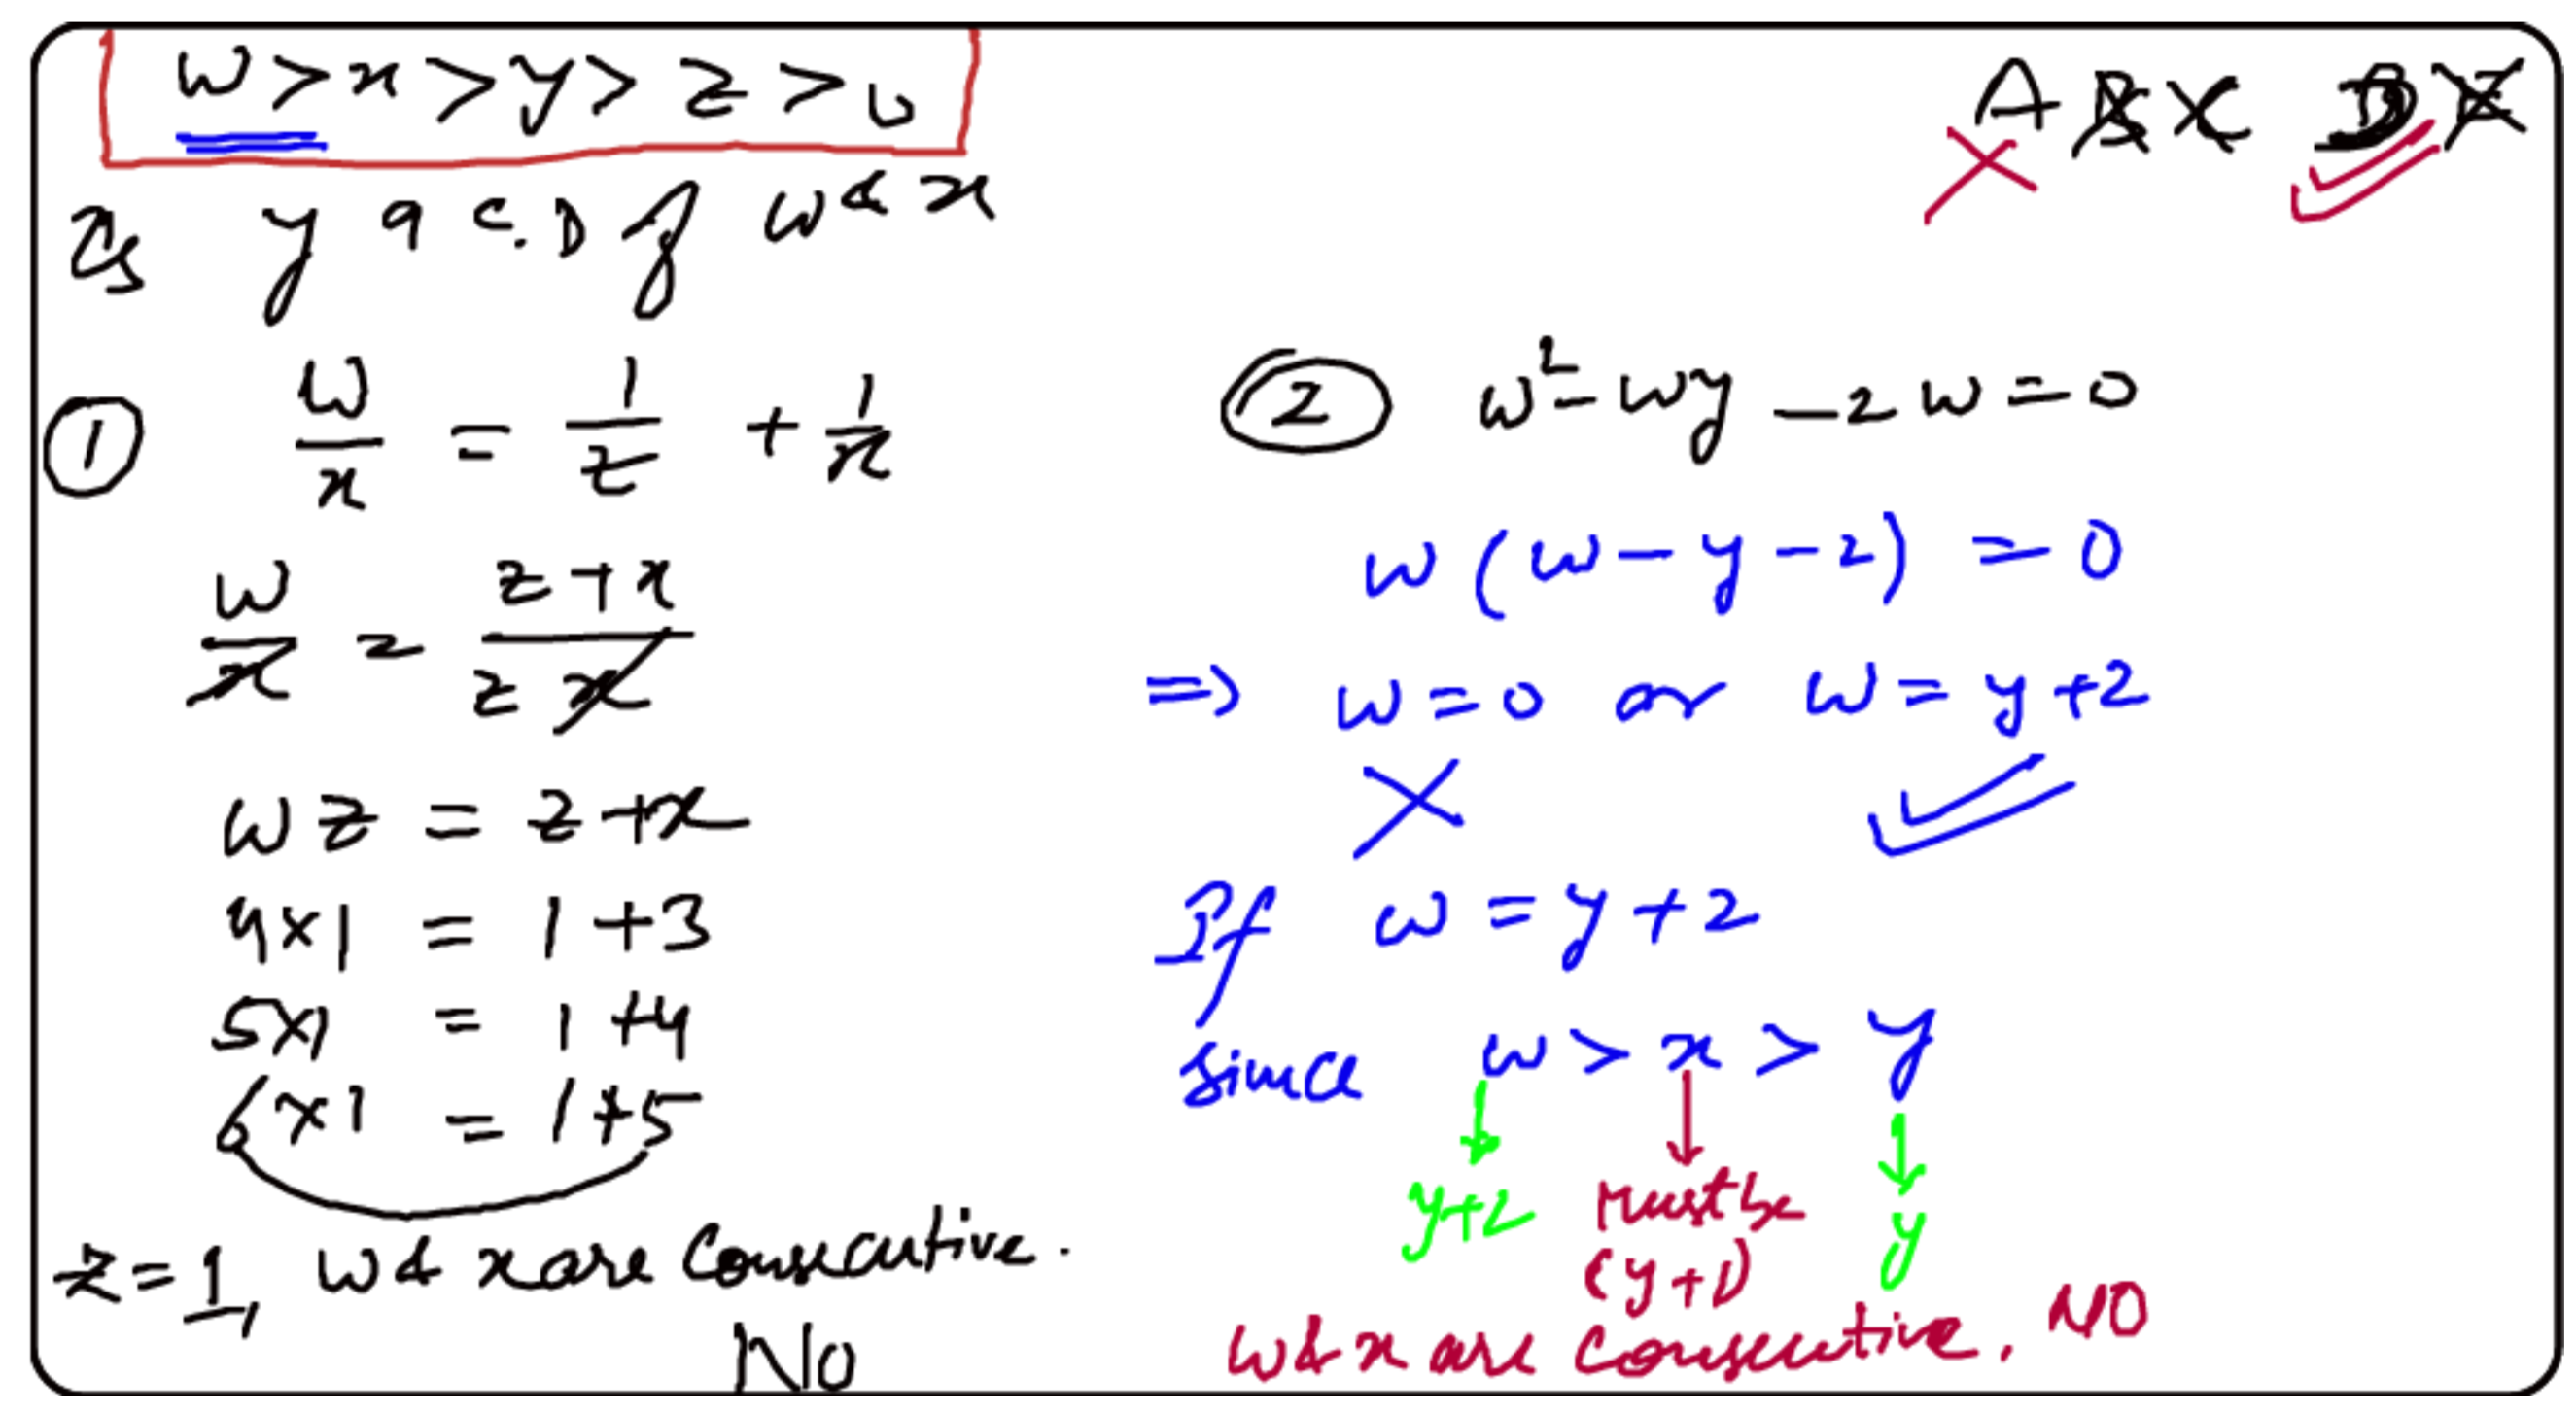 w > x > y > z > 0
A B C D E
Is y a C.D of w & x
① w/x = 1/z + 1/x
w/x = z+x / z x
wz = z+x
4×1 = 1+3
5×1 = 1+4
6×1 = 1+5
z=1, w & x are Consecutive.
NO
② w²-wy-2w=0
w(w-y-2) = 0
⇒ w=0 or w=y+2
If w=y+2
since w > x > y
y+2 must be y
(y+1)
w & x are Consecutive. NO